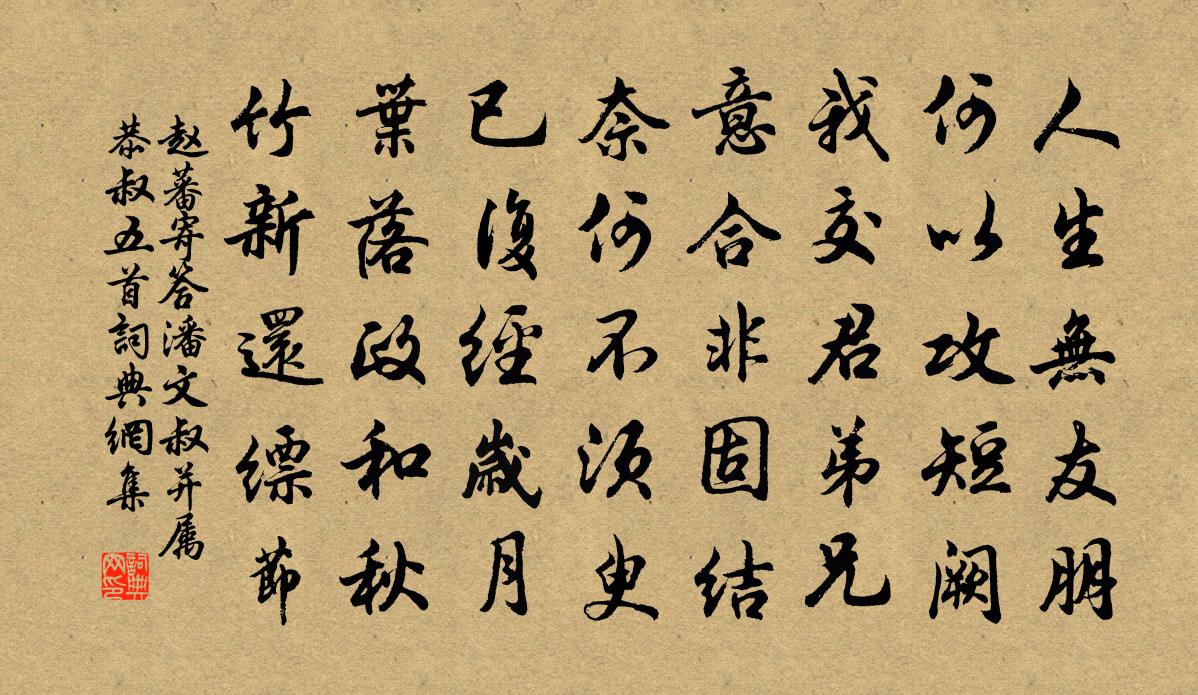 人生無友朋
何以攻短闕
我交君弟兄
意合非固結
奈何不須臾
已復經歲月
葉落政和秋
竹新還縹節
赵蕃寄答潘文叔并属
恭叔五首詞典網集
詞典网印